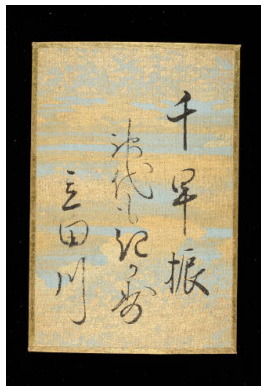 千早振
神代も記かす
立田川